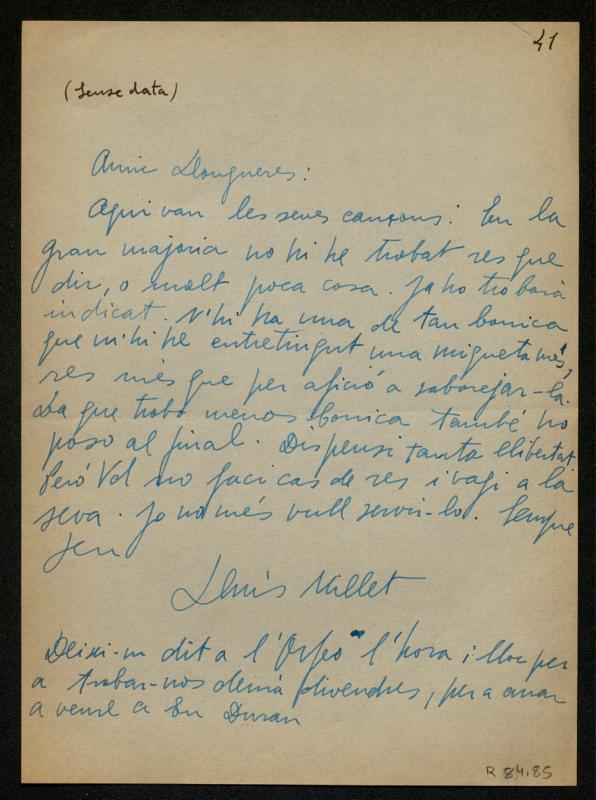 41
(Sense data)
Amic Llongueres:
Aqui van les seves cançons: En la
gran majoria no hi he trobat res que
dir, o molt poca cosa. Ja ho trobarà
indicat. N'hi ha una de tan bonica
que m'hi he entretingut una migueta més,
res més que per afició a saborejar-la.
La que trobo menos bonica també ho
poso al final. Dispensi tanta llibertat
Però Vd no faci cas de res i vagi a la
seva. Jo només vull servir-lo. Sempre
seu
Lluís Millet
Deixi-m dit a l'Orfeo l'hora i lloc per
a trobar-nos demà divendres, per a anar
a veure a En Duran
R 84.85